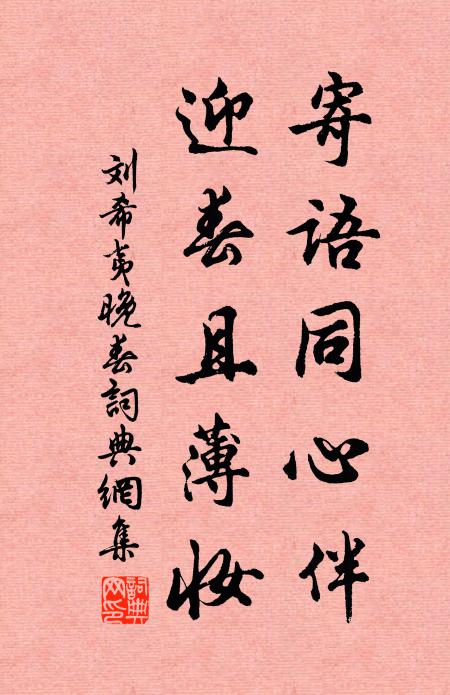 寄语同心伴
迎春且薄妆
刘希夷晚春詞典網集
詞典网印